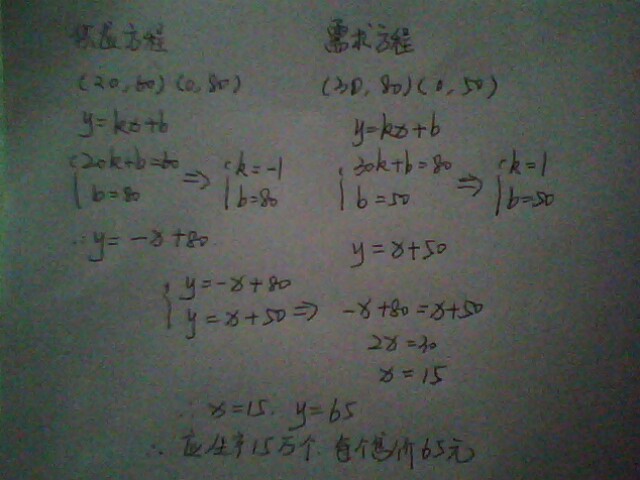 供应方程
(20,60)(0,80)
y=kx+b
{20k+b=60 ⇒ {k=-1
b=80 b=80
∴y=-x+80
需求方程
(30,80)(0,50)
y=kx+b
{30k+b=80 ⇒ {k=1
b=50 b=50
y=x+50
{y=-x+80
y=x+50 ⇒ -x+80=x+50
2x=30
x=15
∴x=15. y=65
∴应生产15万个.每个售价65元